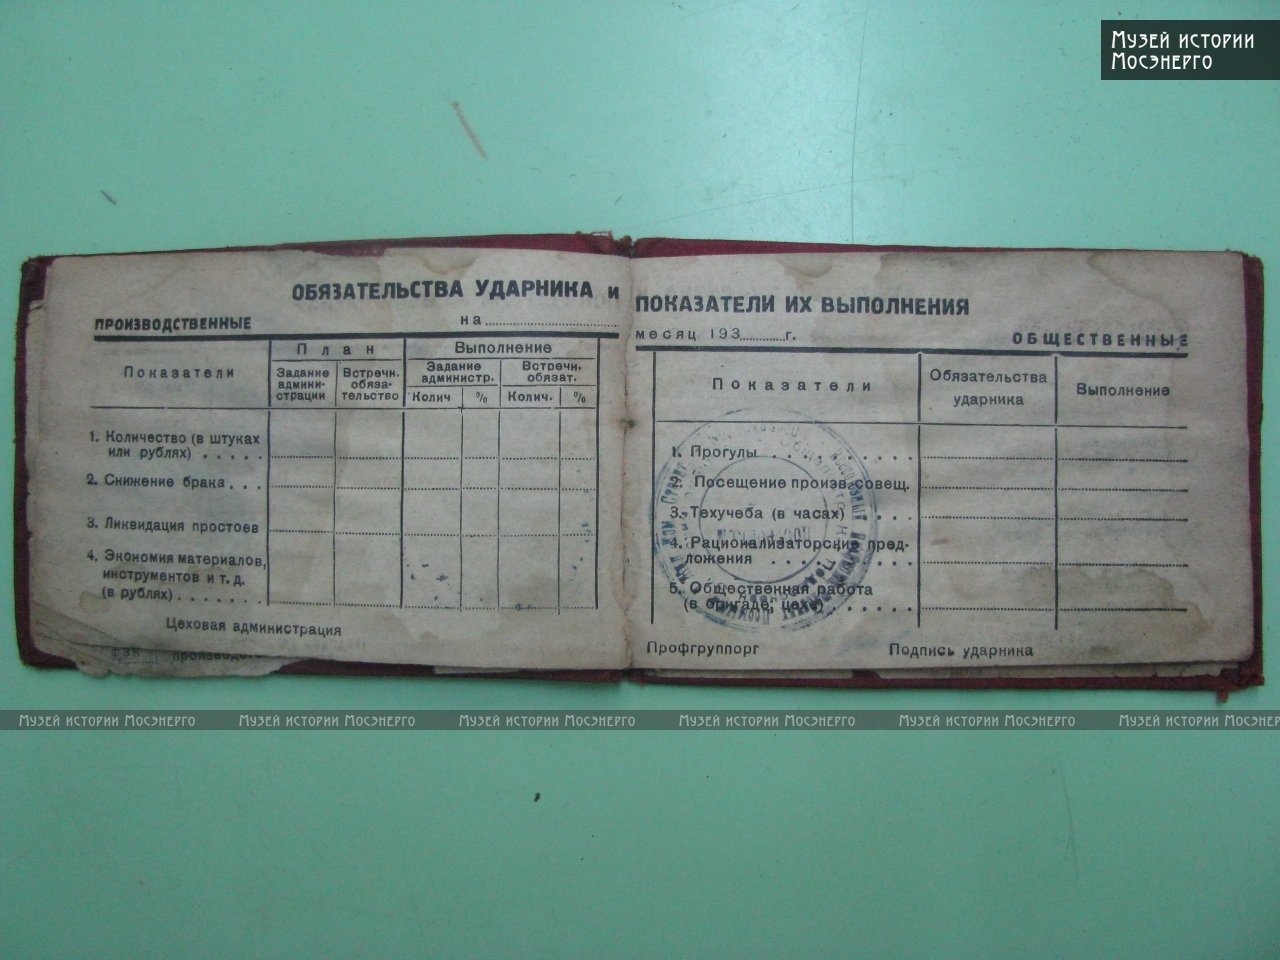 Музей истории
Мосэнерго
ОБЯЗАТЕЛЬСТВА УДАРНИКА и ПОКАЗАТЕЛИ ИХ ВЫПОЛНЕНИЯ
ПРОИЗВОДСТВЕННЫЕ
на
месяц 193 г.
ОБЩЕСТВЕННЫЕ
Показатели
План
Задание
админи-
страции
Встречн.
обяза-
тельство
Выполнение
Задание
администр.
Встречн.
обязат.
Колич
%
Колич.
%
1. Количество (в штуках
или рублях) . . . . .
2. Снижение брака . . .
3. Ликвидация простоев
4. Экономия материалов,
инструментов и т. д.
(в рублях) . . . . . . .
Цеховая администрация
ФЗК
Показатели
Обязательства
ударника
Выполнение
1. Прогулы . . . . . . . .
2. Посещение произв. совещ.
3. Техучеба (в часах) . . . .
4. Рационализаторские пред-
ложения . . . . . . . .
5. Общественная работа
(в бригаде, цехе) . . . . . .
Профгруппорг
Подпись ударника
Музей истории Мосэнерго Музей истории Мосэнерго Музей истории Мосэнерго Музей истории Мосэнерго Музей истории Мосэнерго Музей истории Мосэнерго